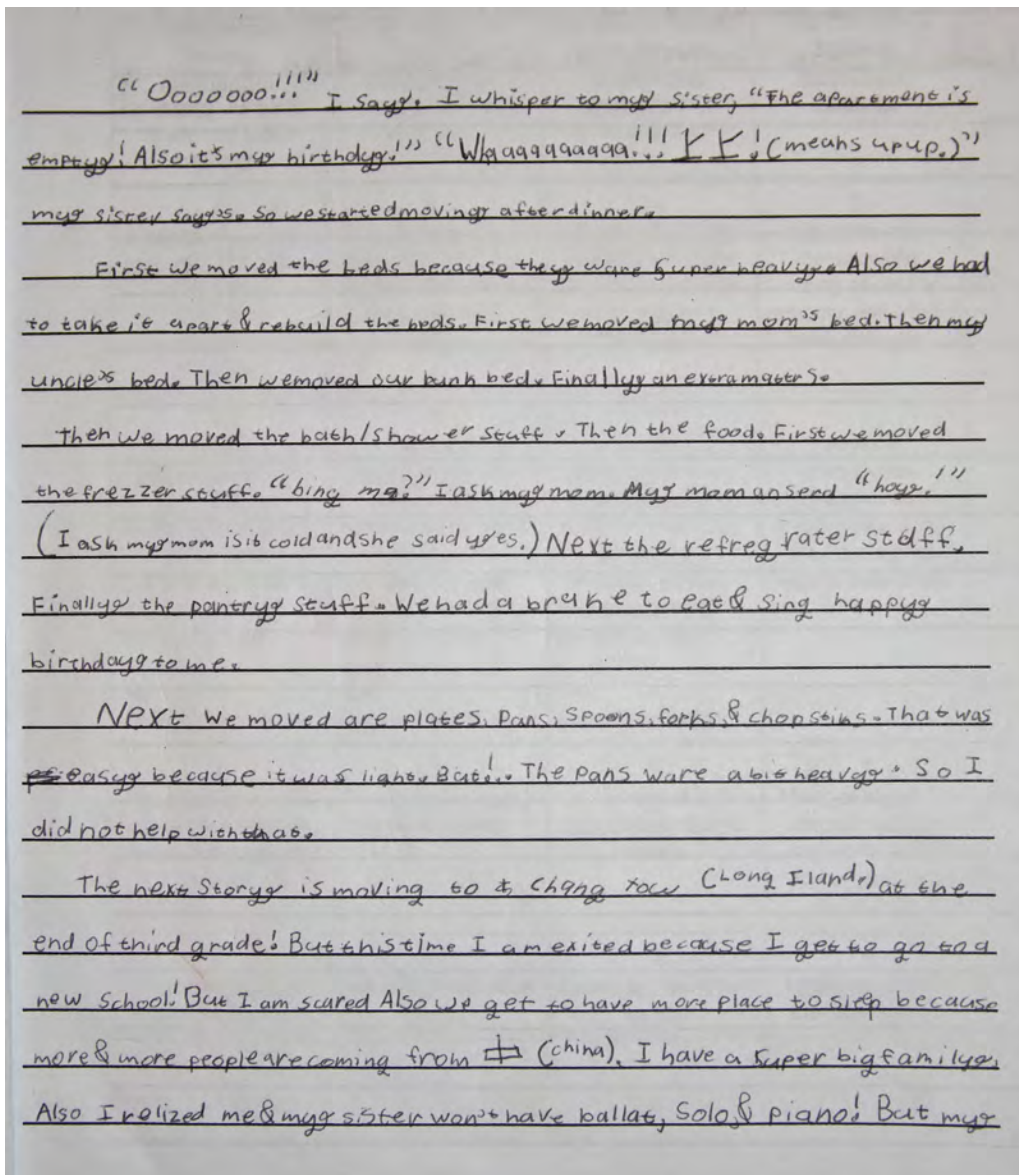 "Ooooooo!!!" I says. I whisper to my sister, "The apartment is
empty! Also it's my birthday!" "Waaaaaaaaaa!!! 上上! (means up up.)"
my sister says. So we started moving after dinner.
First we moved the beds because they ware super heavy. Also we had
to take it apart & rebuild the beds. First we moved my mom's bed. Then my
uncle's bed. Then we moved our bunk bed. Finally an extra matters.
Then we moved the bath/shower stuff. Then the food. First we moved
the frezzer stuff. "bing ma?" I ask my mom. My mom anserd "hoy!"
(I ask my mom is it cold and she said yes.) Next the refreg rater stuff.
Finally the pantry stuff. We had a brake to eat & sing happy
birthday to me.
Next we moved are plates, pans, spoons, forks, & chopstiks. That was
easy because it was light. But!.. The pans ware a bit heavy. So I
did not help with that.
The next story is moving to Chang (Long Iland.) at the
end of third grade! But this time I am exited because I get to go to a
new school! But I am scared Also we get to have more place to sleep because
more & more people are coming from 中 (china). I have a super big family.
Also I relized me & my sister won't have ballat, Solo, & piano! But my